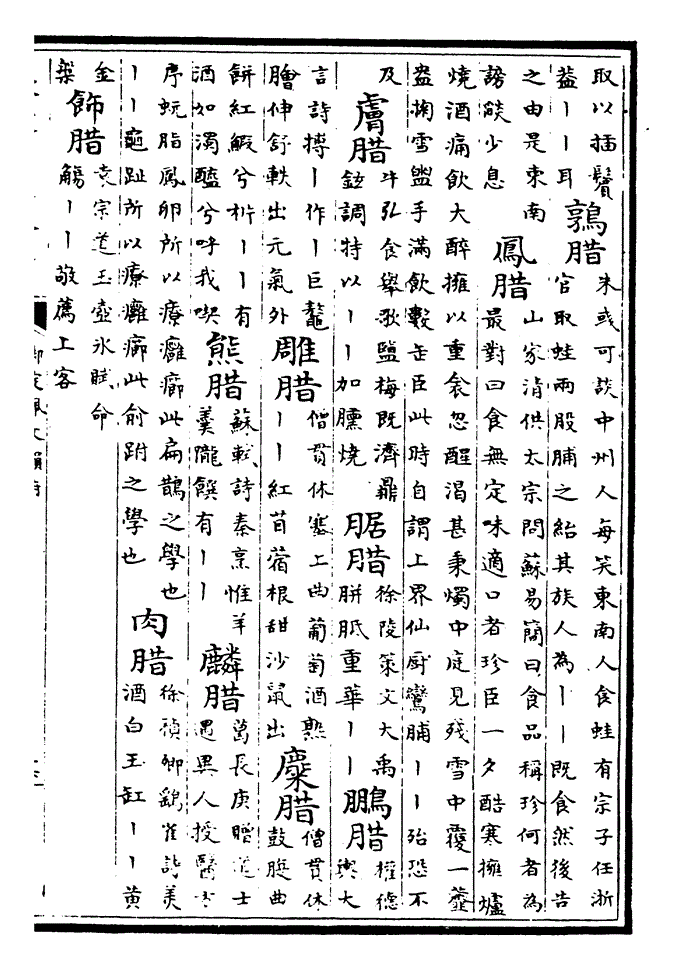 取以插鬢
蓋丨丨耳
鶉腊
朱或可談中州人每笑東南人食蛙有宗子任浙
官取蛙兩股脯之紿其族人為丨丨既食然後告
之由是東南
謗燄少息
鳳腊
山家清供太宗問蘇易簡曰食品稱珍何者為
最對曰食無定味適口者珍臣一夕酷寒擁爐
燒酒痛飲大醉擁以重衾忽醒渴甚秉燭中庭見殘雪中覆一虀
盎掬雪盥手滿飲數缶臣此時自謂上界仙厨鸞脯丨丨殆恐不
及
膚腊
牛弘食舉歌鹽梅既濟鼎
鉉調特以丨丨加臐燒
腒腊
徐陵策文大禹
胼胝重華丨丨
鵬腊
權德
輿大
言詩搏丨作丨巨鼇
膾伸舒軼出元氣外
雕腊
僧貫休塞上曲葡萄酒熟
丨丨紅苜蓿根甜沙鼠出
麋腊
僧貫休
鼓腹曲
餅紅鰕兮析丨丨有
酒如濁醯兮呼我喫
熊腊
蘇軾詩秦烹惟羊
羹隴饌有丨丨
麟腊
葛長庚贈道士
遇異人授醫方
序蚖脂鳳卵所以療癰癤此扁鵲之學也
丨丨龜趾所以療癱癤此俞跗之學也
肉腊
徐禎卿鷄雀詩美
酒白玉缸丨丨黃
金
槃
飾腊
袁宗道玉壺氷賦命
觴丨丨敬薦上客